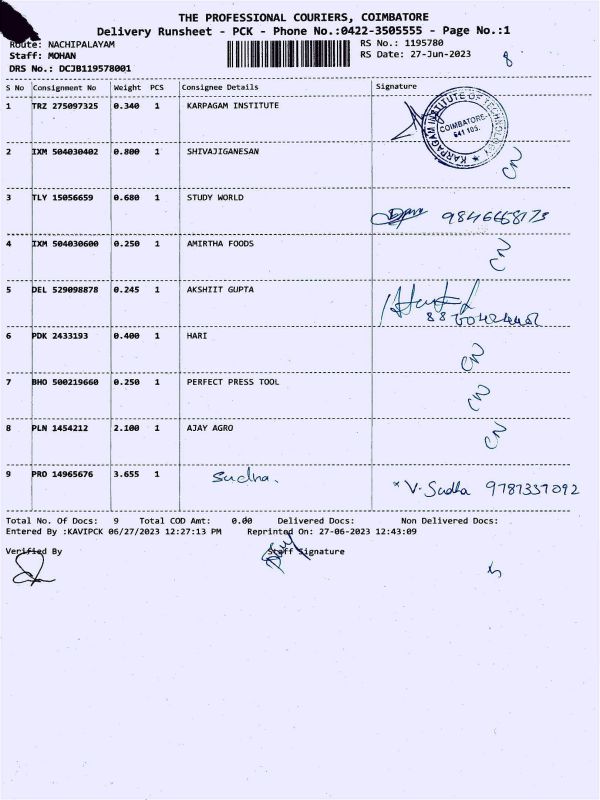 THE PROFESSIONAL COURIERS, COIMBATORE
Delivery Runsheet - PCK - Phone No.:0422-3505555 - Page No.:1
Route: NACHIPALAYAM RS No.: 1195780
Staff: MOHAN RS Date: 27-Jun-2023 8
DRS No.: DCJB119578001
S No Consignment No Weight PCS Consignee Details Signature
1 TRZ 275097325 0.340 1 KARPAGAM INSTITUTE
KARPAGAM INSTITUTE OF TECHNOLOGY
COIMBATORE-
641 105.
2 IXM 504030402 0.800 1 SHIVAJIGANESAN CN
3 TLY 15056659 0.680 1 STUDY WORLD
4 IXM 504030600 0.250 1 AMIRTHA FOODS CN
5 DEL 529098878 0.245 1 AKSHIIT GUPTA
6 PDK 2433193 0.400 1 HARI CN
7 BHO 500219660 0.250 1 PERFECT PRESS TOOL CN
8 PLN 1454212 2.100 1 AJAY AGRO CN
9 PRO 14965676 3.655 1 Sudha. * V. Sudha 9787337092
Total No. Of Docs: 9 Total COD Amt: 0.00 Delivered Docs: Non Delivered Docs:
Entered By :KAVIPCK 06/27/2023 12:27:13 PM Reprinted On: 27-06-2023 12:43:09
Verified By Staff Signature